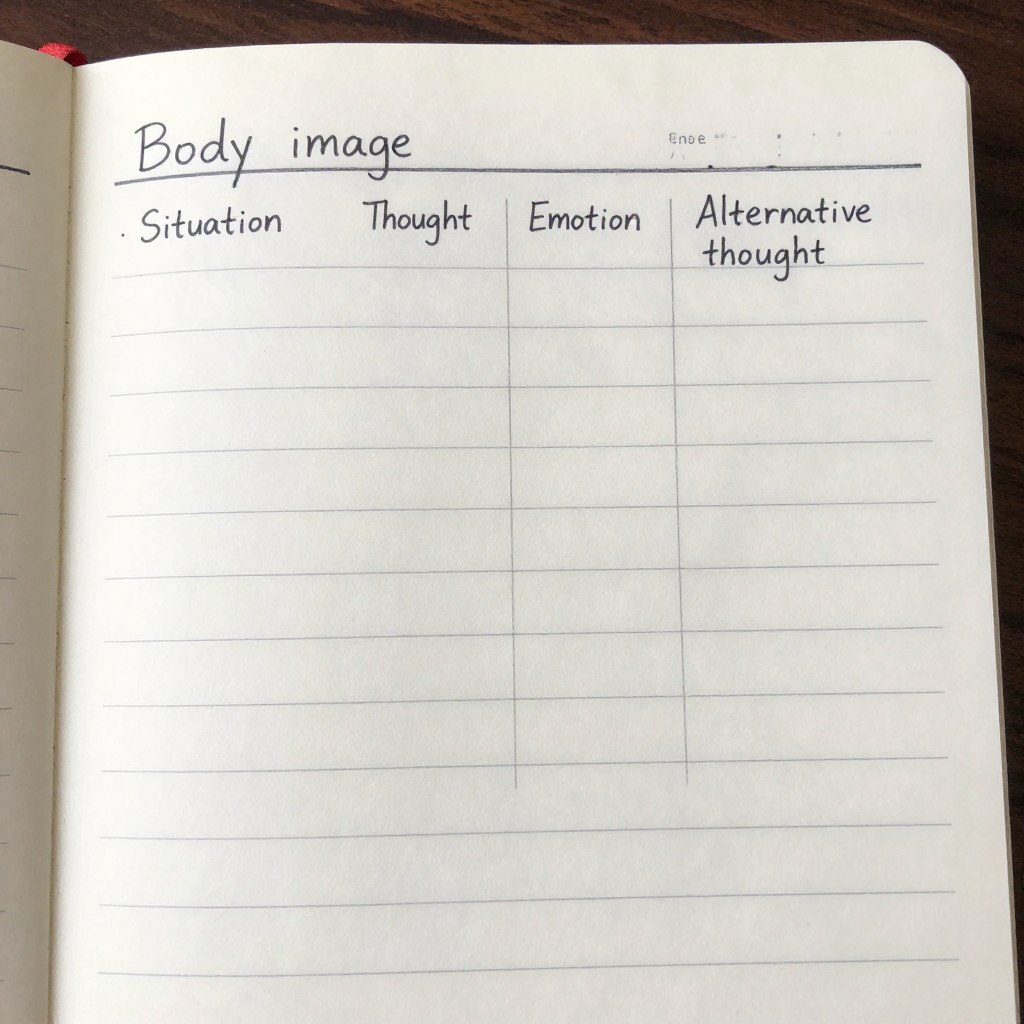 Body image
Situation Thought Emotion Alternative
thought